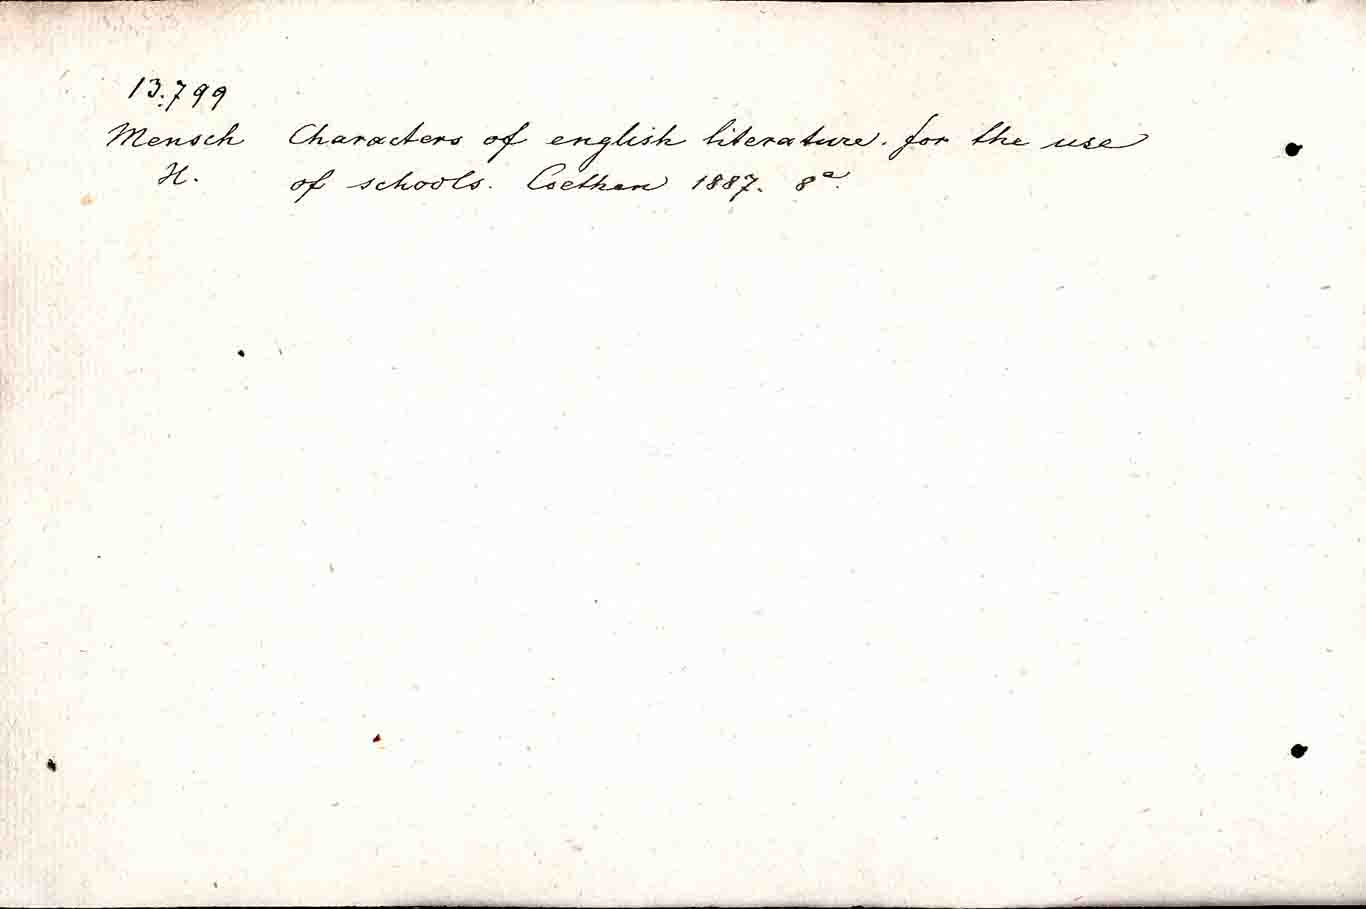 13.799
Mensch Characters of english literature. for the use
H. of schools. Coethen 1887. 8º.